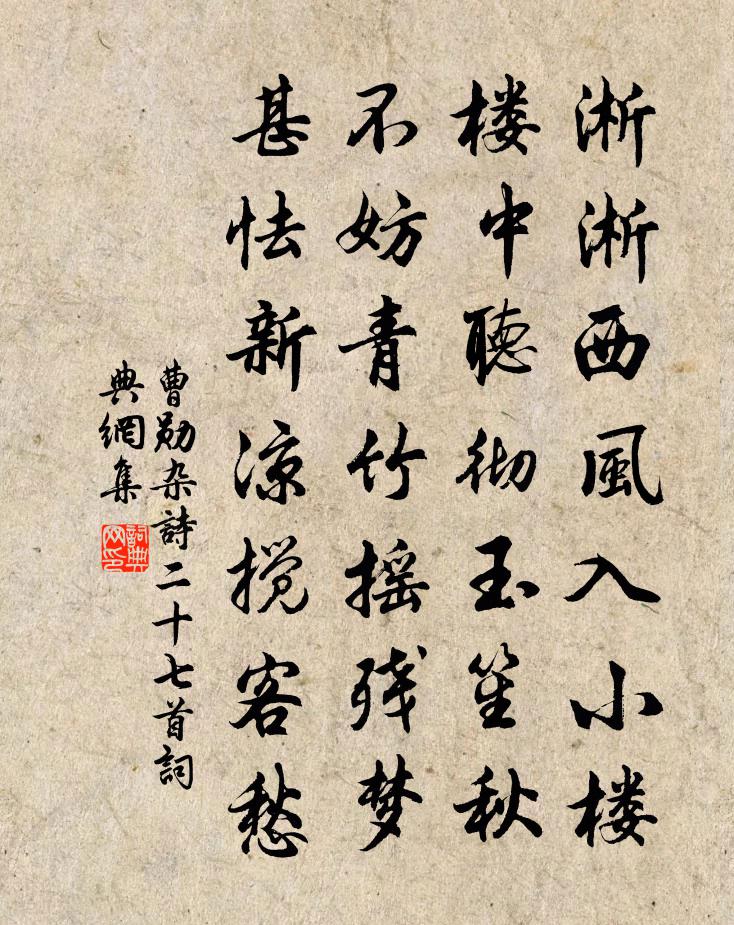 淅淅西風入小楼
楼中聽彻玉笙秋
不妨青竹摇残梦
甚怯新凉搅客愁
曹勋杂詩二十七首詞
典網集
詞典
网印